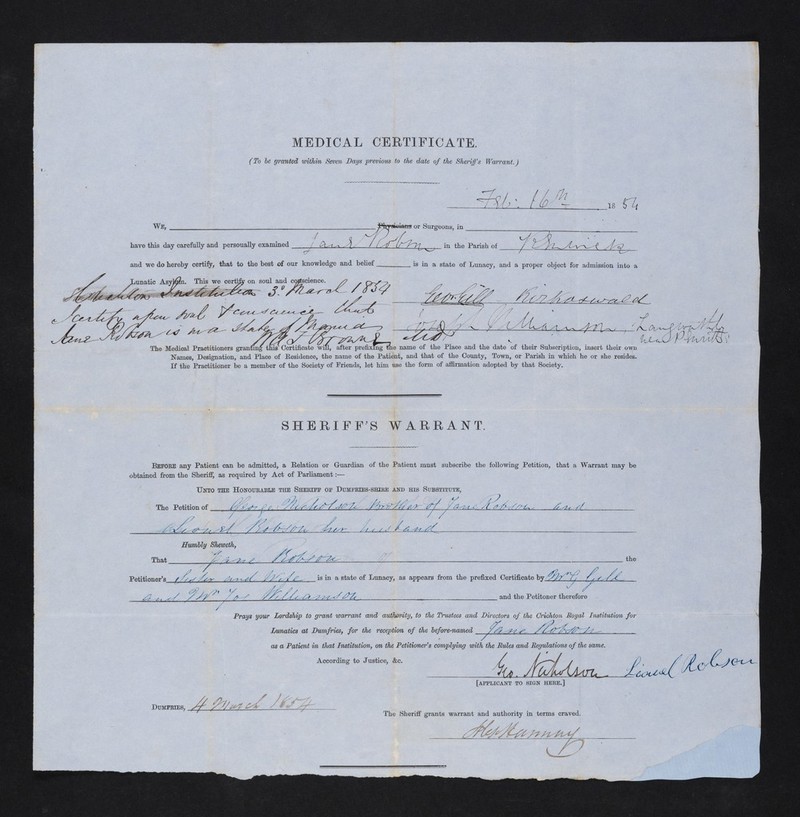 MEDICAL CERTIFICATE.
(To be granted within Seven Days previous to the date of the Sheriff's Warrant.)
Feb: 16th 1854
WE, Physicians or Surgeons, in
have this day carefully and personally examined Jane Robson in the Parish of Renwick
and we do hereby certify, that to the best of our knowledge and belief is in a state of Lunacy, and a proper object for admission into a
Lunatic Asylum. This we certify on soul and conscience.
Institution 3d March 1854
Geo Gill Kirkoswald
I certify upon soul & conscience that
Williamson Langwathby
Jane Robson is in a state of Mania
near Penrith
W A F Browne Md
The Medical Practitioners granting this Certificate will, after prefixing the name of the Place and the date of their Subscription, insert their own
Names, Designation, and Place of Residence, the name of the Patient, and that of the County, Town, or Parish in which he or she resides.
If the Practitioner be a member of the Society of Friends, let him use the form of affirmation adopted by that Society.
SHERIFF'S WARRANT.
BEFORE any Patient can be admitted, a Relation or Guardian of the Patient must subscribe the following Petition, that a Warrant may be
obtained from the Sheriff, as required by Act of Parliament:—
UNTO THE HONOURABLE THE SHERIFF OF DUMFRIES-SHIRE AND HIS SUBSTITUTE,
The Petition of George Nicholson brother of Jane Robson and
Lionel Robson her husband
Humbly Sheweth,
That Jane Robson the
Petitioner's Sister and Wife is in a state of Lunacy, as appears from the prefixed Certificate by Mr G Gill
and Mr Jos Williamson and the Petitioner therefore
Prays your Lordship to grant warrant and authority, to the Trustees and Directors of the Crichton Royal Institution for
Lunatics at Dumfries, for the reception of the before-named Jane Robson
as a Patient in that Institution, on the Petitioner's complying with the Rules and Regulations of the same.
According to Justice, &c.
Geo. Nicholson Lionel Robson
[APPLICANT TO SIGN HERE.]
DUMFRIES, 4 March 1854
The Sheriff grants warrant and authority in terms craved.
Hannay